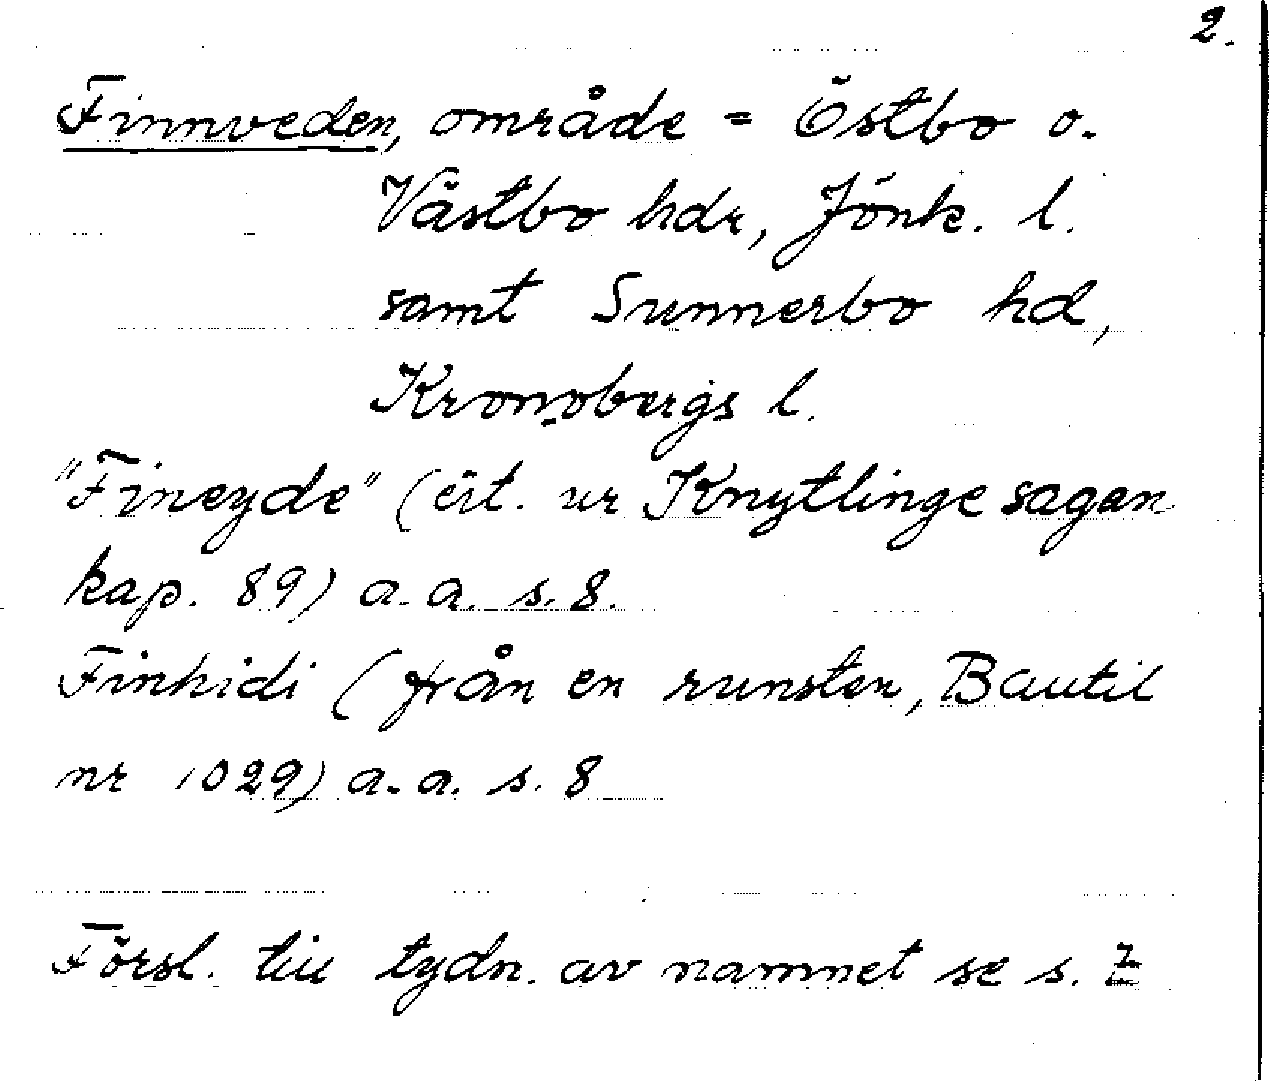 2.
Finnveden, område = Östbo o.
Västbo hdr, Jönk. l.
samt Sunnerbo hd,
Kronobergs l.
"Fineyde" (cit. ur Knytlinge sagan
kap. 89) a. a. s. 8.
Finhidi (från en runsten, Bautil
nr 1029) a. a. s. 8
Försl. till tydn. av namnet se s. 7